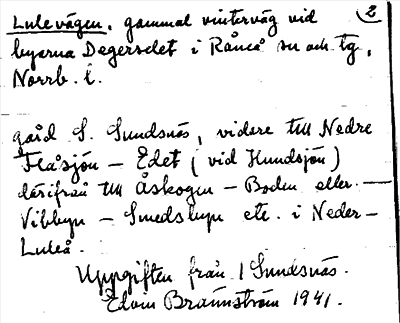 Lulevägen, gammal vinterväg vid 2
byarna Degerselet i Råneå sn och tg,
Norrb. l.
gård S. Sundsnäs, vidare till Nedre
Flåsjön – Edet (vid Hundsjön)
därifrån till Åskogen – Boden eller –
Vibbyn – Smedsbyn etc. i Neder-
Luleå.
Uppgiften från Sundsnäs.
Edvin Brännström 1941.